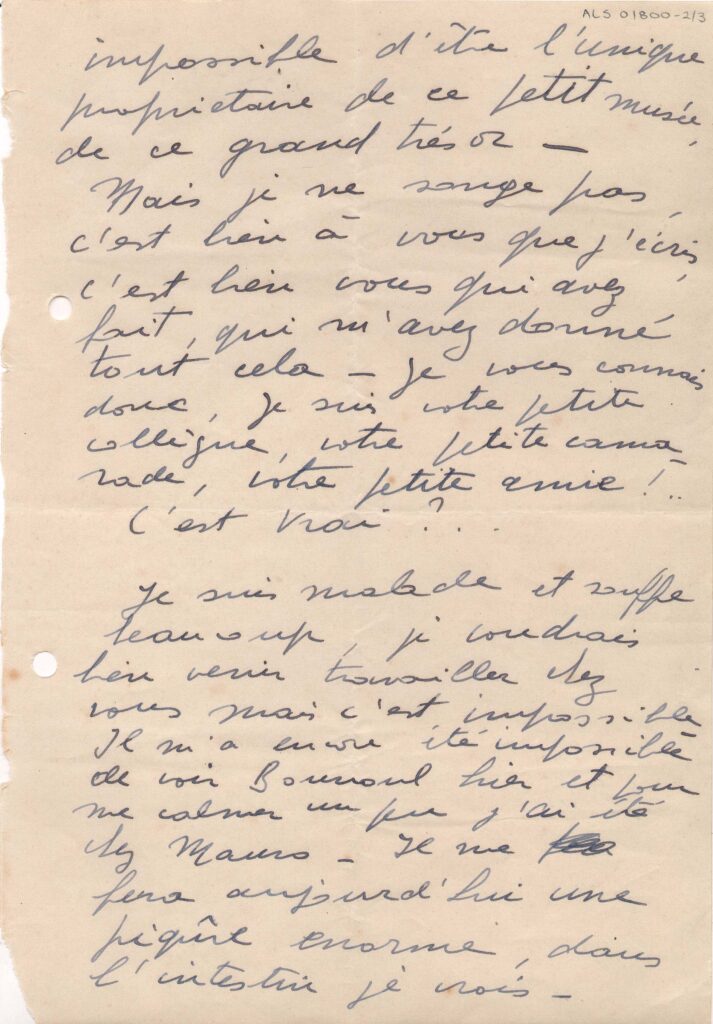 ALS 01800-2/3
impossible d'être l'unique
proprietaire de ce petit musée,
de ce grand trésor —
Mais je ne songe pas,
c'est bien à vous que j'écris,
c'est bien vous qui avez
fait, qui m'avez donné
tout cela — Je vous connais
donc, Je suis votre petite
collègue, votre petite cama-
rade, votre petite amie !..
C'est vrai ?..
Je suis malade et souffre
beaucoup, je voudrais
bien venir travailler chez
vous mais c'est impossible
Il m'a encore été impossible
de voir hier et pour
me calmer un peu j'ai été
chez Mauro — Il me
fera aujourd'hui une
piqûre enorme, dans
l'intestin je crois —